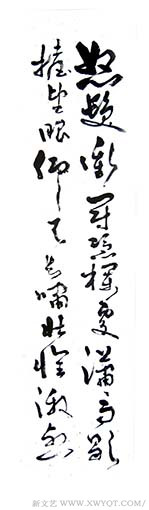 怒髮衝冠憑欄處瀟々雨歇
擡望眼仰天長嘯壯懷激烈
新文艺 www.XWYOT.COM/